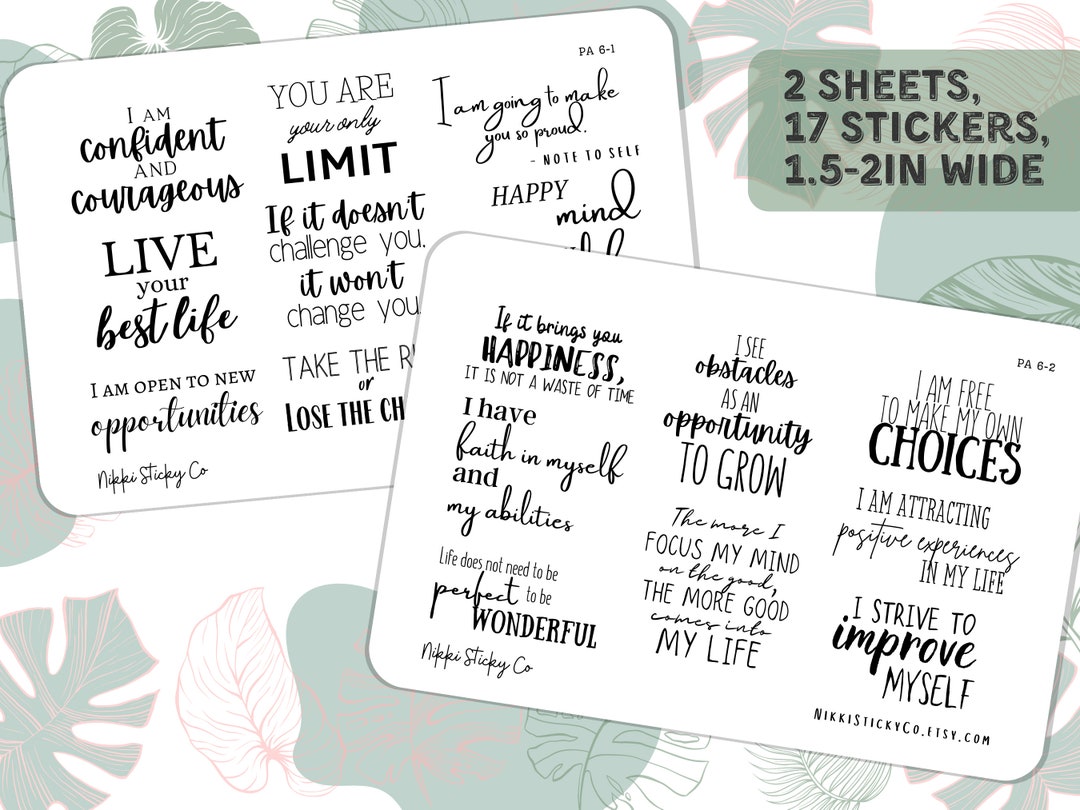 2 SHEETS,
17 STICKERS,
1.5-2IN WIDE
PA 6-1
I AM
confident
AND
courageous
LIVE
your
best life
I AM OPEN TO NEW
opportunities
Nikki Sticky Co
YOU ARE
your only
LIMIT
If it doesn't
challenge you.
it won't
change you.
TAKE THE
or
LOSE THE
I am going to make
you so proud.
- NOTE TO SELF
HAPPY
mind
PA 6-2
If it brings you
HAPPINESS,
IT IS NOT A WASTE OF TIME
I have
faith in myself
and
my abilities
Life does not need to be
perfect to be
WONDERFUL
Nikki Sticky Co
I SEE
obstacles
AS AN
opportunity
TO GROW
The more I
FOCUS MY MIND
on the good,
THE MORE GOOD
comes into
MY LIFE
I AM FREE
TO MAKE MY OWN
CHOICES
I AM ATTRACTING
positive experiences
IN MY LIFE
I STRIVE TO
improve
MYSELF
NikkiStickyCo.etsy.com